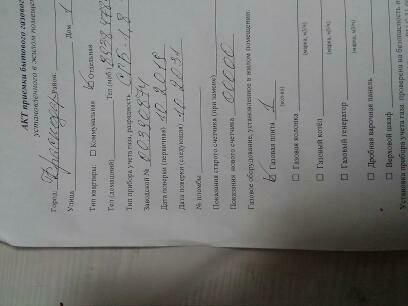 АКТ приемки бытового газового
установленного в жилом помещении
Город: Краснодар Район:
Улица Дом 1
Тип квартиры: ☐ Коммунальная ☑ Отдельная
Тел (домашний) Тел (моб)
Тип прибора учета газа, разрядность СГБ-1,8
Заводской №
Дата поверки (первичная) 10.2019
Дата поверки (следующая) 10.2031
№ пломбы
Показания старого счетчика (при замене)
Показания нового счетчика 00000
Газовое оборудование, установленное в жилом помещении:
☑ Газовая плита 1
(кол-во)
☐ Газовая колонка
(марка, м3/ч)
☐ Газовый котёл
(марка, м3/ч)
☐ Газовый генератор
(марка, м3/ч)
☐ Дробная варочная панель
☐ Верховой шкаф
Установка прибора учета газа проверена на безопасность и